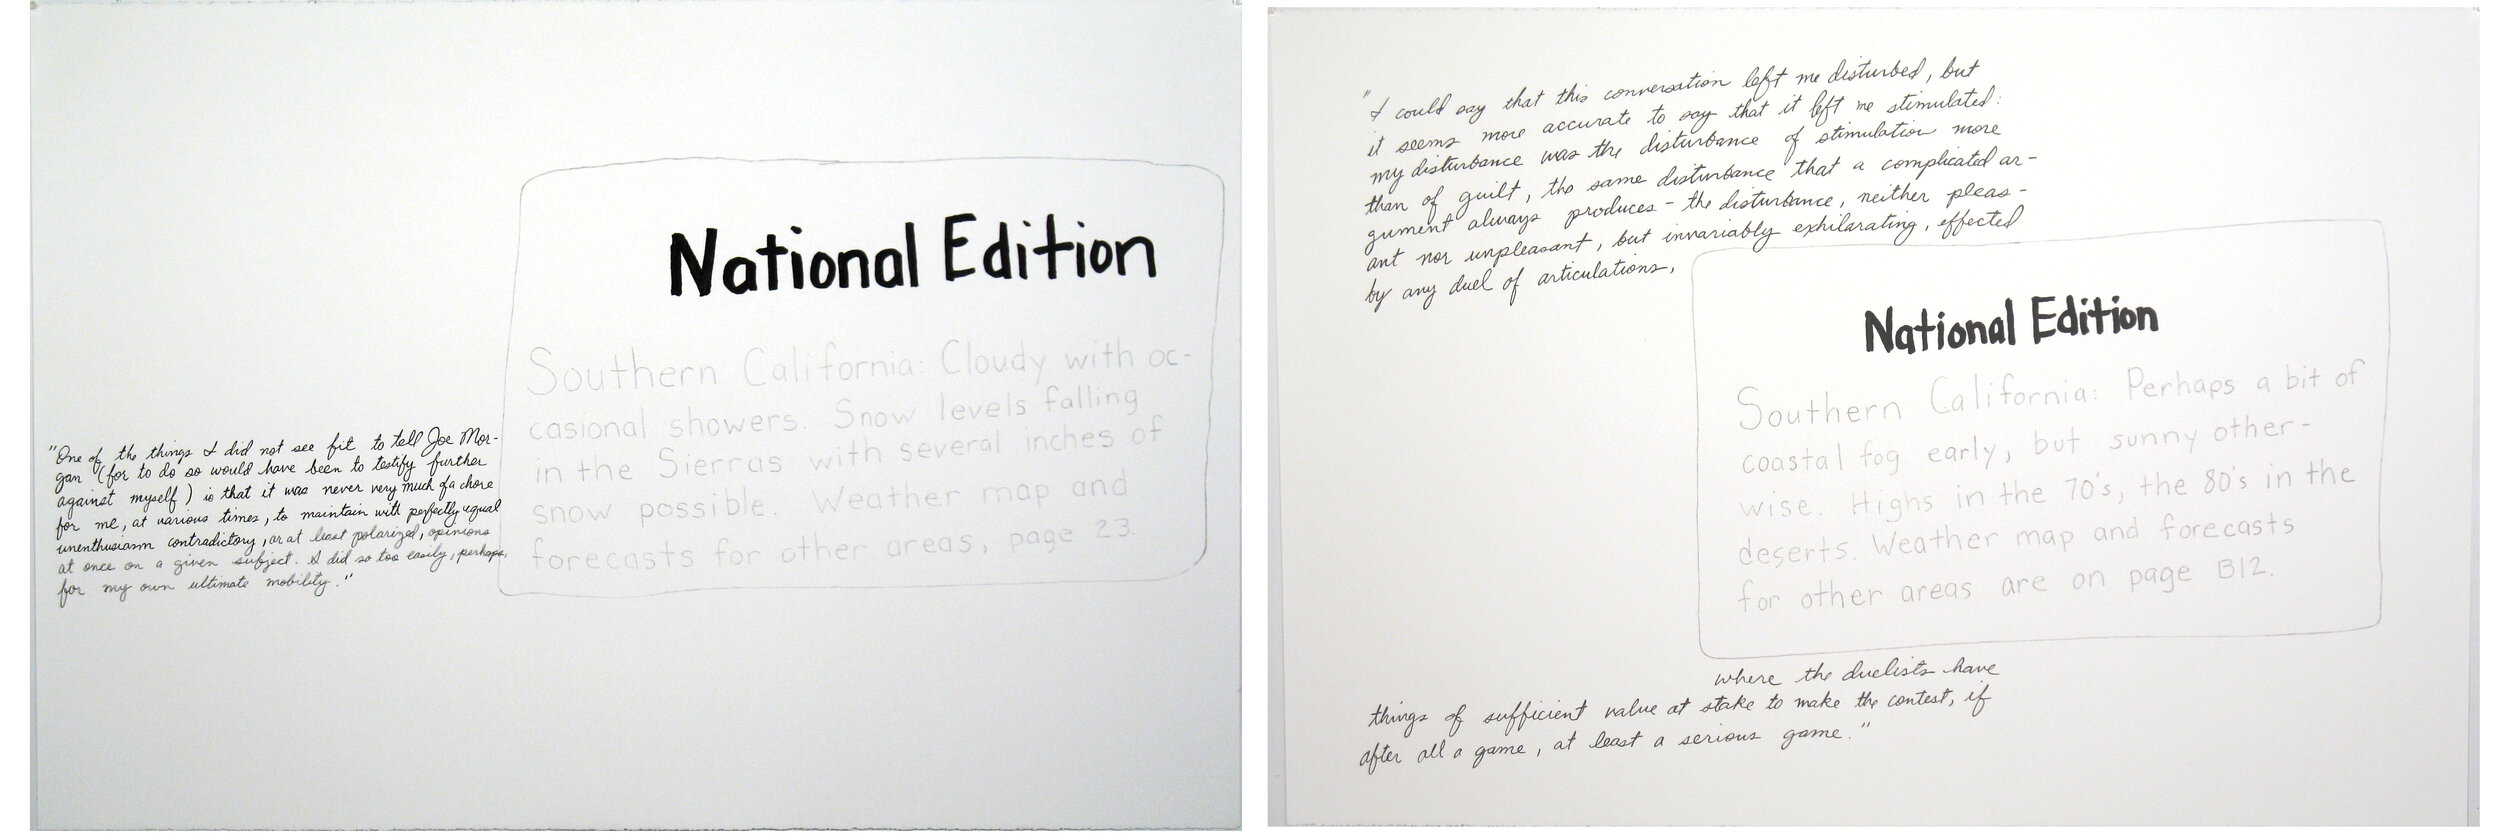 National Edition
Southern California: Cloudy with oc-
casional showers. Snow levels falling
in the Sierras with several inches of
snow possible. Weather map and
forecasts for other areas, page 23.
"One of the things I did not see fit to tell Joe Mor-
gan (for to do so would have been to testify further
against myself) is that it was never very much of a chore
for me, at various times, to maintain with perfectly equal
unenthusiasm contradictory, or at least polarized, opinions
at once on a given subject. I did so too easily, perhaps,
for my own ultimate mobility."
"I could say that this conversation left me disturbed, but
it seems more accurate to say that it left me stimulated:
my disturbance was the disturbance of stimulation more
than of guilt, the same disturbance that a complicated ar-
gument always produces - the disturbance, neither pleas-
ant nor unpleasant, but invariably exhilarating, effected
by any duel of articulations,
National Edition
Southern California: Perhaps a bit of
coastal fog early, but sunny other-
wise. Highs in the 70's, the 80's in the
deserts. Weather map and forecasts
for other areas are on page B12.
where the duelists have
things of sufficient value at stake to make the contest, if
after all a game, at least a serious game."